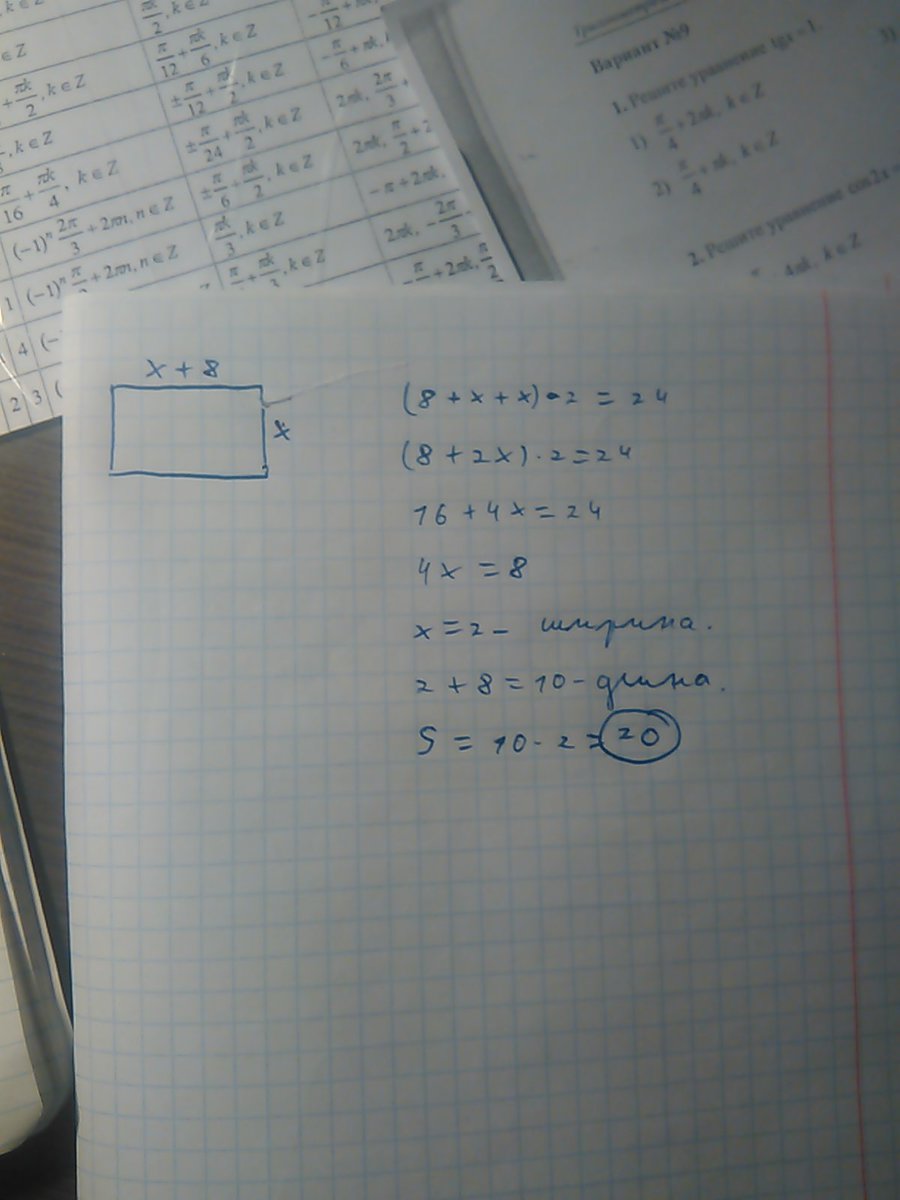 k ∈ Z
πk/2, k ∈ Z
π/12 + πk/6, k ∈ Z
+ πk/2, k ∈ Z
± π/12 + πk/2, k ∈ Z
2πk, 2π/3 +
, k ∈ Z
± π/24 + πk/2, k ∈ Z
2πk, π/2 + 2
π/16 + πk/4, k ∈ Z
± π/6 + πk/2, k ∈ Z
-π + 2πk,
(-1)ⁿ 2π/3 + 2πn, n ∈ Z
πk/3, k ∈ Z
2πk, -2π/3
1
+ 2πn, n ∈ Z
, k ∈ Z
+ 2πk, π/2
4 (-
2 3 (
Вариант №9
1. Решите уравнение tgx =1.
1) π/4 + 2πk, k ∈ Z
3)
2) π/4 + πk, k ∈ Z
2. Решите уравнение cos2x
4πk, k ∈ Z
x + 8
x
(8 + x + x) · 2 = 24
(8 + 2x) · 2 = 24
16 + 4x = 24
4x = 8
x = 2 - ширина.
2 + 8 = 10 - длина.
S = 10 · 2 = 20